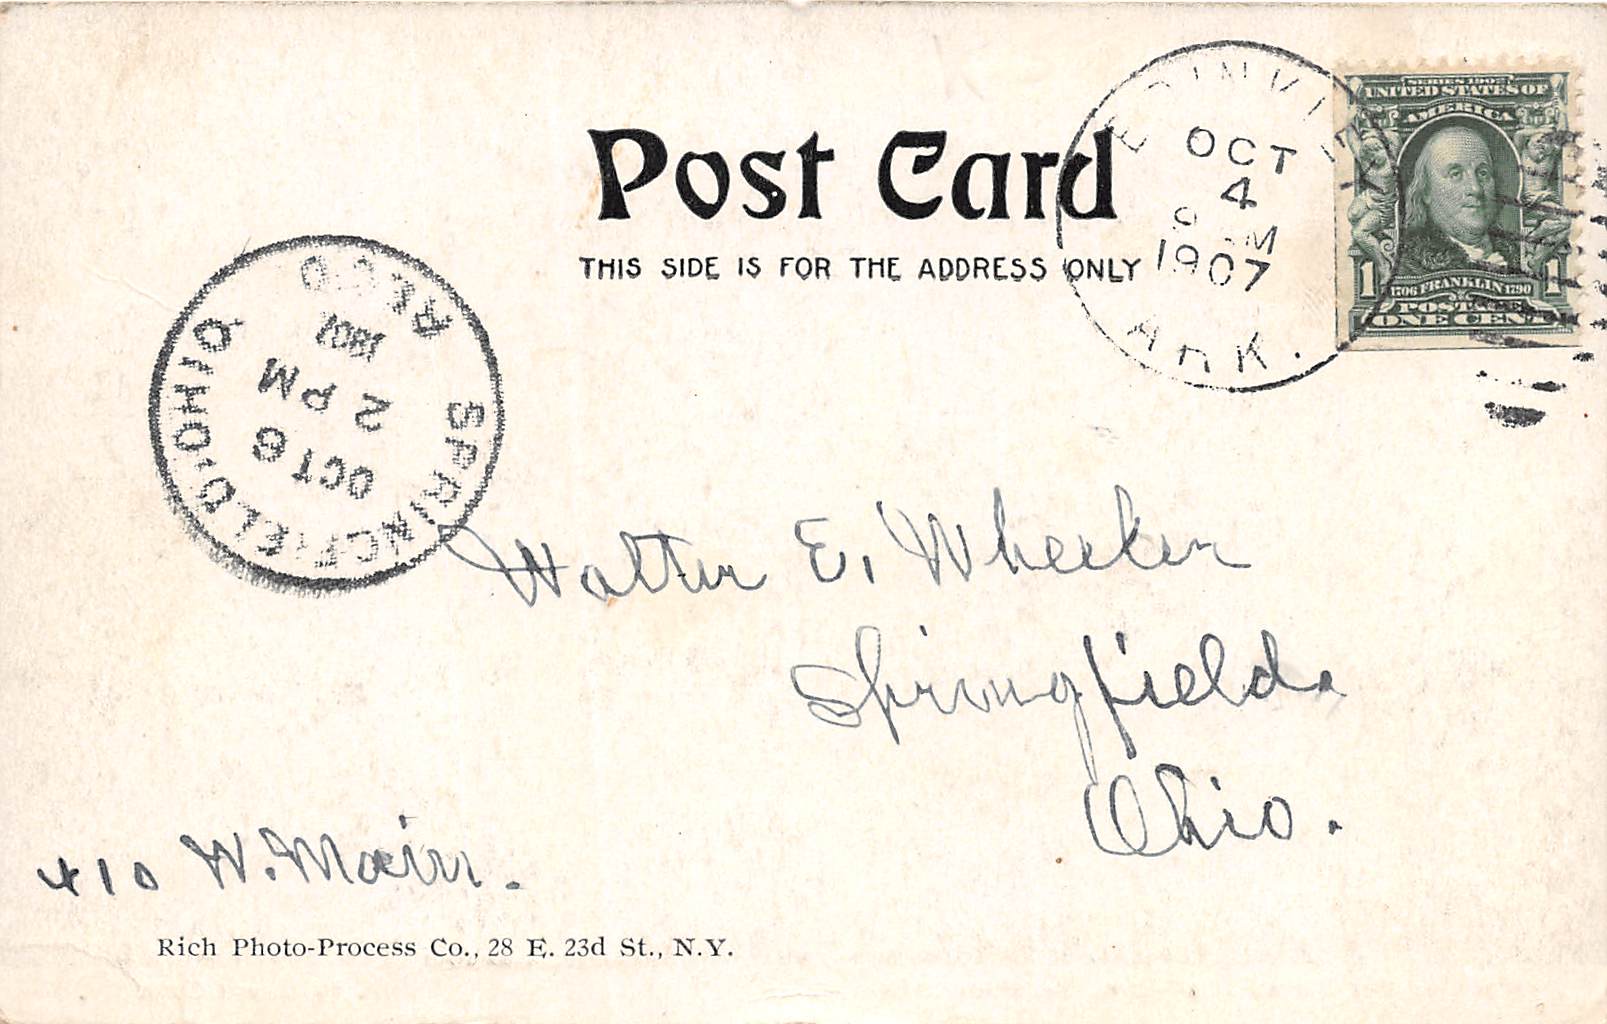 Post Card
THIS SIDE IS FOR THE ADDRESS ONLY
OCT
4
1907
ARK.
SERIES 1902
UNITED STATES OF
AMERICA
1706 FRANKLIN 1790
1 1
POSTAGE
ONE CENT
SPRINGFIELD, OHIO
OCT 6
2 PM
1907
REC'D
Walter E. Wheeler
Springfield.
Ohio.
410 W. Main.
Rich Photo-Process Co., 28 E. 23d St., N.Y.